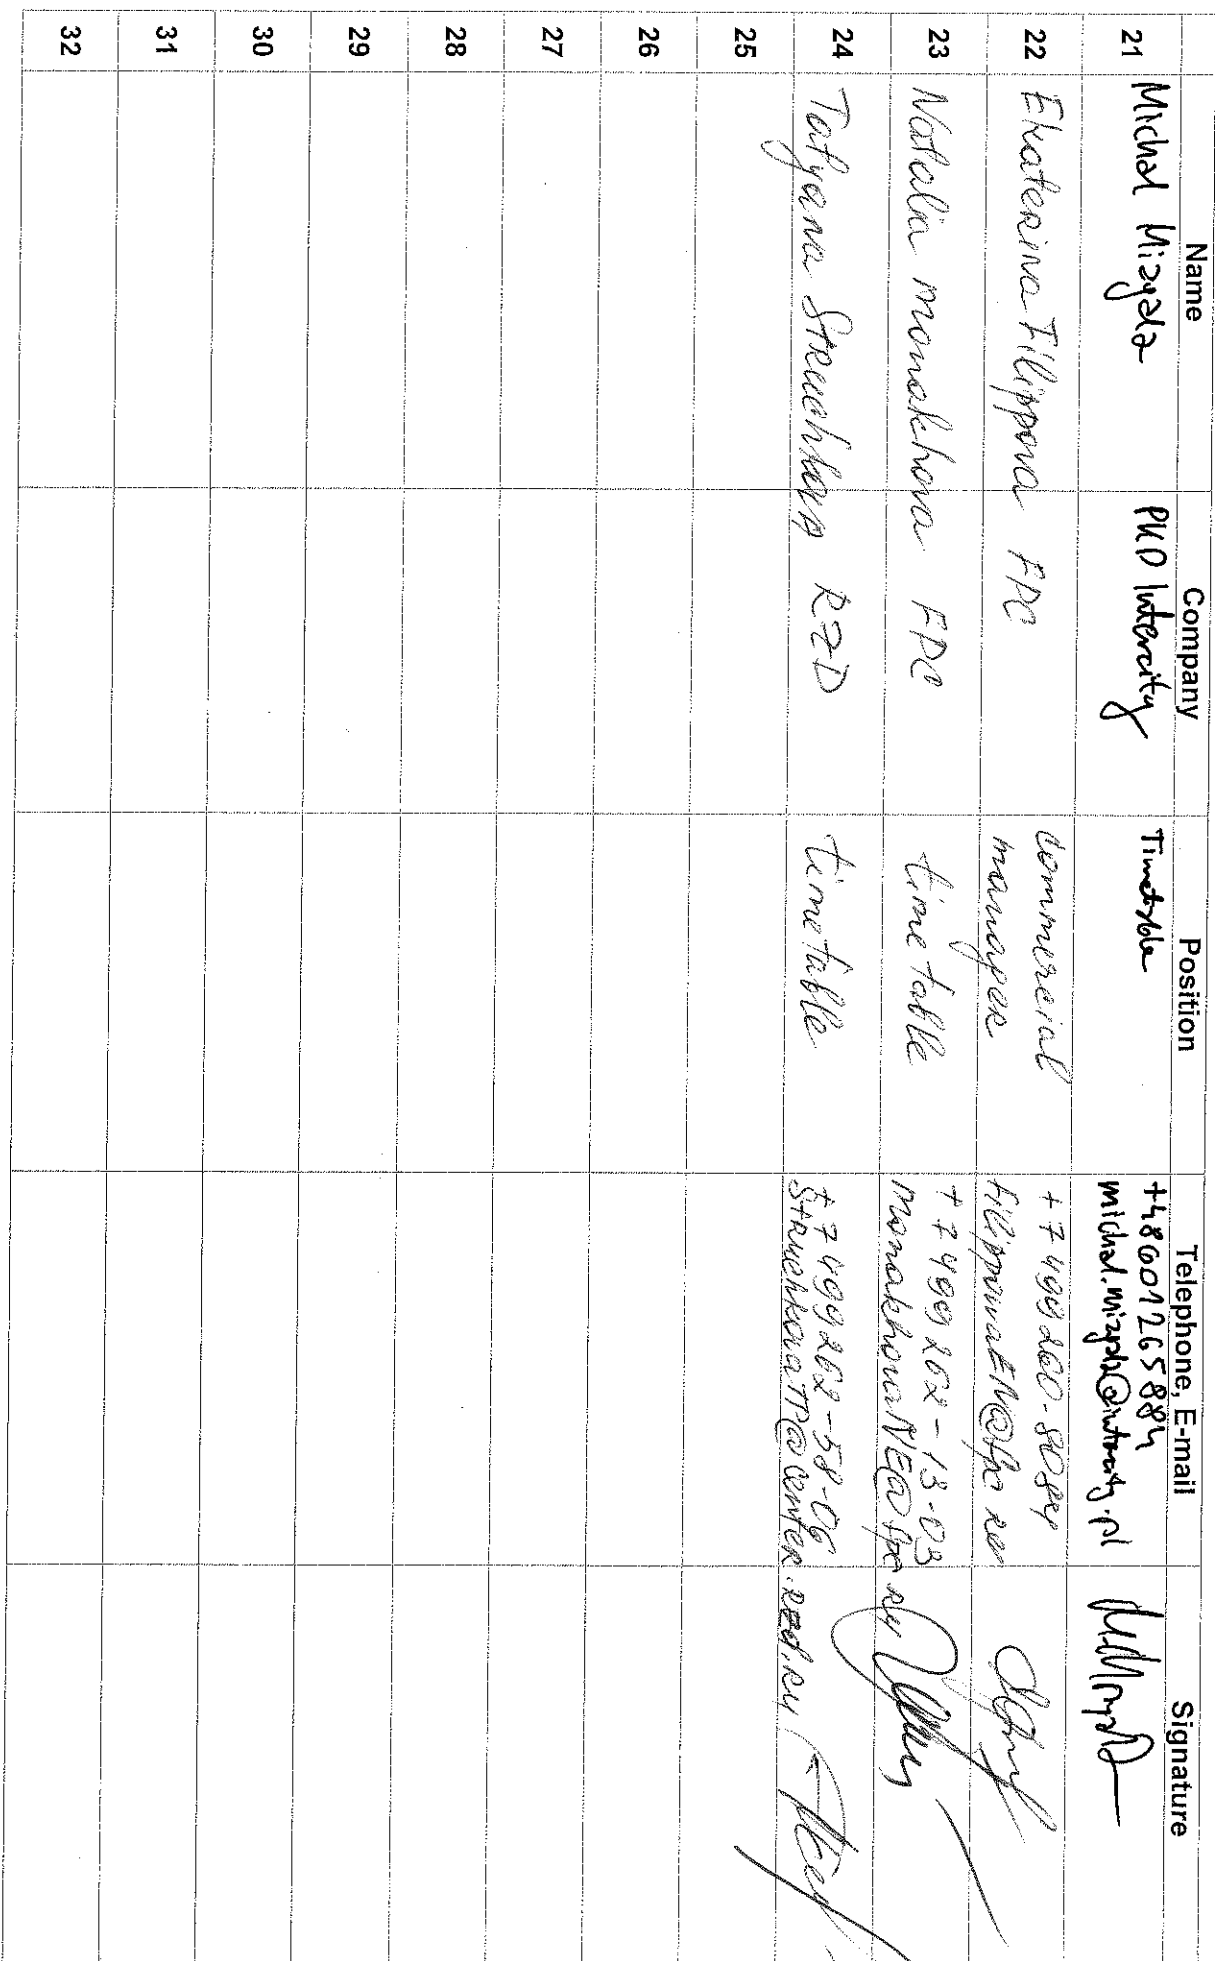 Name Company Position Telephone, E-mail Signature
21 Michal Mizgala PKP Intercity Timetable +48601265884
michal.mizgala@intercity.pl
22 Ekaterina Filippova FPC commercial +7 499 260-80
manager FilippovaEN@fpc.ru
23 Natalia Monakhova FPC timetable +7 499 262-13-03
MonakhovaNE@fpc.ru
24 Tatyana Struchkova RZD timetable +7 499 262-58-06
StruchkovaTP@center.rzd.ru
25
26
27
28
29
30
31
32